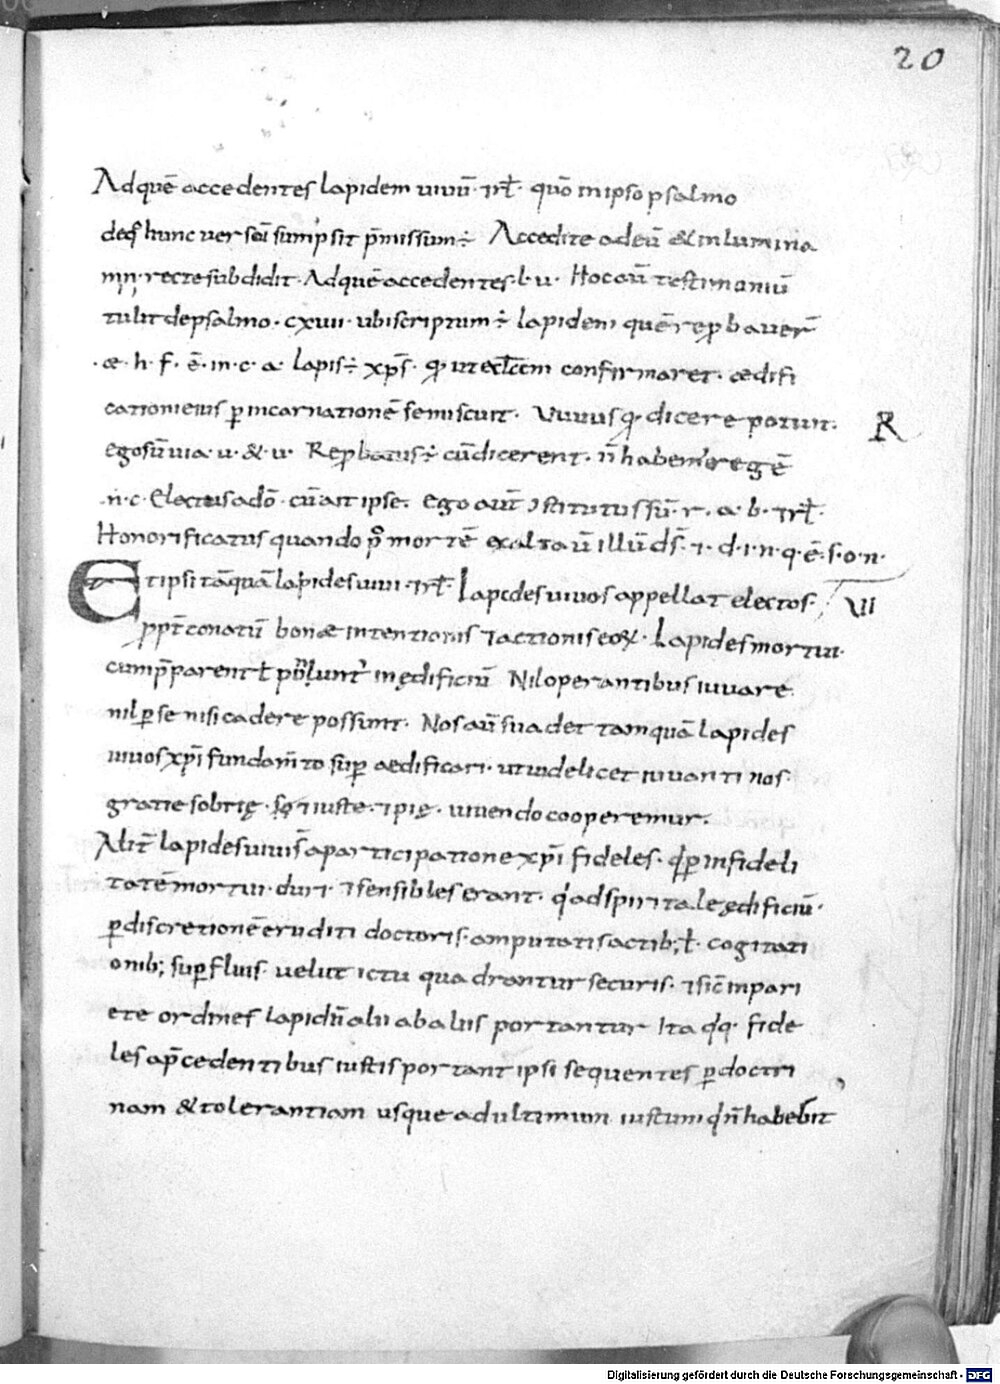 20
Ad quē accedentes lapidem uiuū · rł · quō in ipso psalmo
de q̄ hunc uersū sūmpsit p̄missum ÷ Accedite ad eū & inlumina
mīnī · recte subdidit · Ad quē accedentes · l · u · Hoc aū testimoniū
tulit de psalmo · cxuii · ubi scriptum ÷ lapidem quē reprobauer̄
· æ · h · f · ē · in · c · a · lapis ÷ xp̄s · qui ut eccl̄am confirmaret · ædifi
cationi eius p incarnationē se miscuit · Uiuus q dicere potuit ·
ego sū uia · u · & u · Reprobatus ÷ cū dicerent · n̄ habem' regē
· n · c · Electus a dō · cū ait ipse · ego aūt constitutus sū · r · a · b · rł ·
R
Honorificatus quando p' mortē exaltaū illū ds̄ · 7 · d · i · n · q · ē · s · o · n ·
Et ipsi tāquā lapides uiui · rł · Lapides uiuos appellat electos ·
VI
ppt̄ conatū bonæ intentionis 7 actionis eoꝝ · Lapides mortui ·
in ędificiū Nil operantibus iuuare ·
nil p se nisi cadere possunt · Nos aū suadet tamquā lapides
uiuos xp̄i fundam̄to sup ædificari · ut uidelicet iuuanti nos
gratię sobrię · 7 iuste · 7 pię · uiuendo cooperemur ·
Alit̄ lapides uiui s̄ a participatione xp̄i fideles · q p infideli
tatē mortui · duri · 7 sensibles erant · q ad spiritale ędificiū ·
p discretionē eruditi doctoris · amputatis actib; ł · cogitati
onib; supfluis · uelut ictu quadrantur securis · 7 sic̄ in pari
ete ordines lapidū alii ab aliis portantur Ita q̄q · fide
les a p̄cedentibus iustis portant' ipsi sequentes p doctri
nam & tolerantiam usque ad ultimum iustum q n̄ habebit
Digitalisierung gefördert durch die Deutsche Forschungsgemeinschaft - DFG